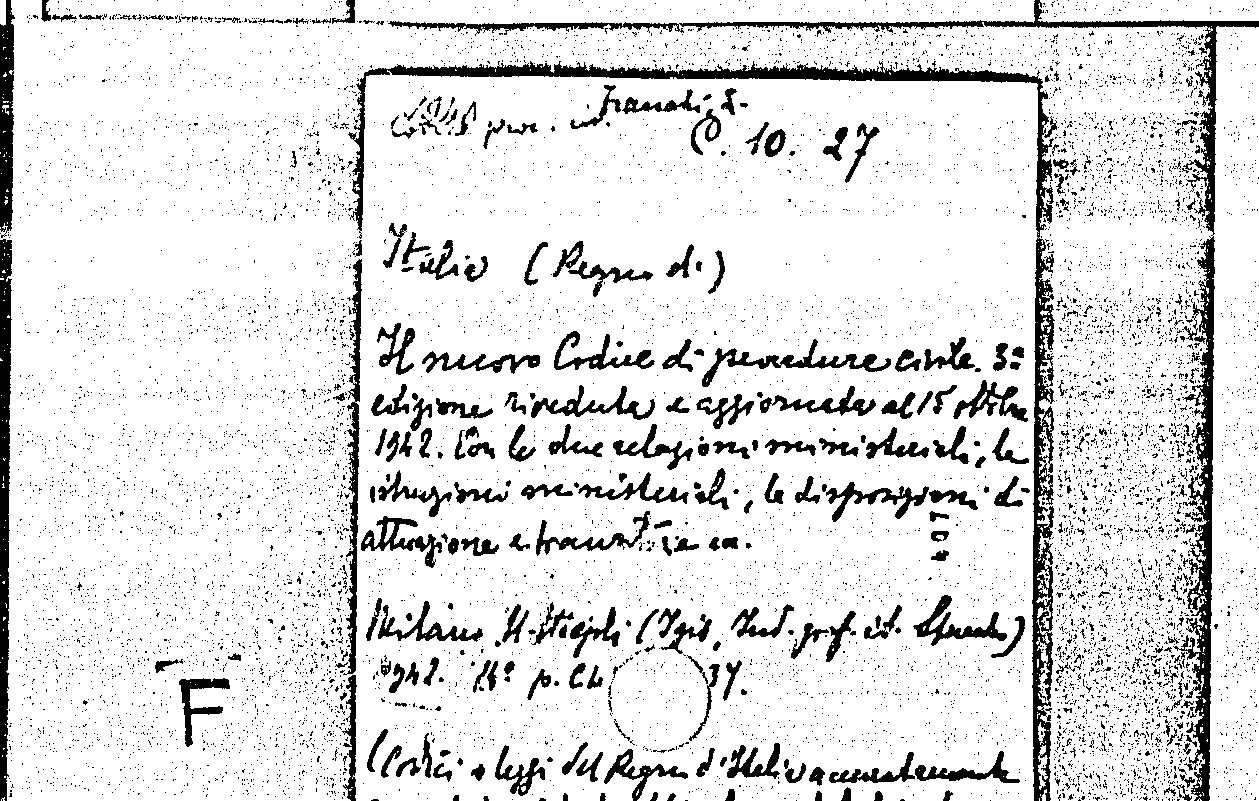 Franchi, L.
proc. civ.
C. 10. 27
Italia (Regno di)
Il nuovo Codice di procedura civile. 3ª
edizione riveduta e aggiornata al 15 ottobre
1942. Con le due relazioni ministeriali, le
istruzioni ministeriali, le disposizioni di
attuazione e transitorie ec.
Milano, U. Hoepli (Igis, Ind. graf. it. Stucchi)
1942. 16º p. 37.
F
(Codici e leggi del Regno d'Italia accuratamente